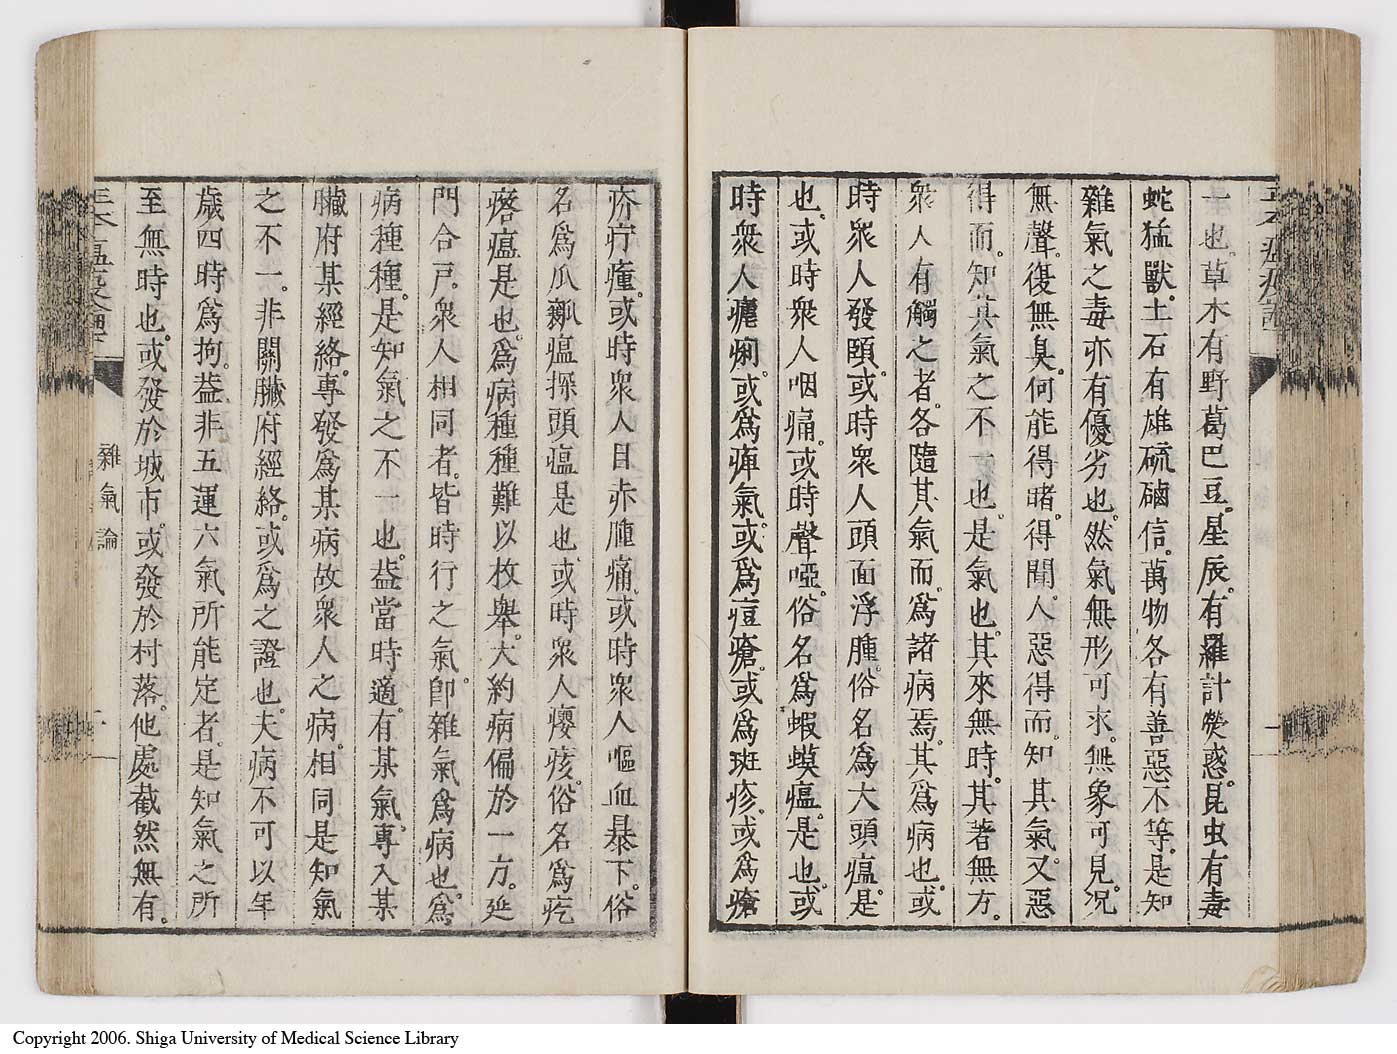 一也。草木有野葛巴豆。星辰。有羅計熒惑。昆虫有毒
蛇猛獸。土石有雄硫硇信。萬物各有善惡不等。是知
雜氣之毒亦有優劣也。然氣無形可求。無象可見。况
無聲。復無臭。何能得睹。得聞。人惡得而。知其氣。又惡
得而。知其氣之不一也。是氣也。其來無時。其著無方。
衆人有觸之者。各隨其氣而。爲諸病焉。其爲病也。或
時衆人發頤。或時衆人頭面浮腫。俗名爲大頭瘟。是
也。或時衆人咽痛。或時聲啞。俗名爲蝦蟆瘟。是也。或
時衆人瘧痢。或爲痺氣。或爲痘瘡。或爲斑疹。或爲瘡
疥疔瘇。或時衆人目赤腫痛。或時衆人嘔血暴下。俗
名爲瓜瓤瘟探頭瘟是也。或時衆人癭痎。俗名爲疙
瘩瘟是也。爲病種種難以枚舉。大約病偏於一方。延
門合戸。衆人相同者。皆時行之氣。即雜氣爲病也。爲
病種種。是知氣之不一也。葢當時適。有某氣。專入某
臟府某經絡。專發爲某病故衆人之病。相同是知氣
之不一。非關臟府經絡。或爲之證也。夫病不可以年
歲四時爲拘。葢非五運六氣所能定者。是知氣之所
至無時也。或發於城市。或發於村落。他處截然無有。
雜氣論
Copyright 2006. Shiga University of Medical Science Library